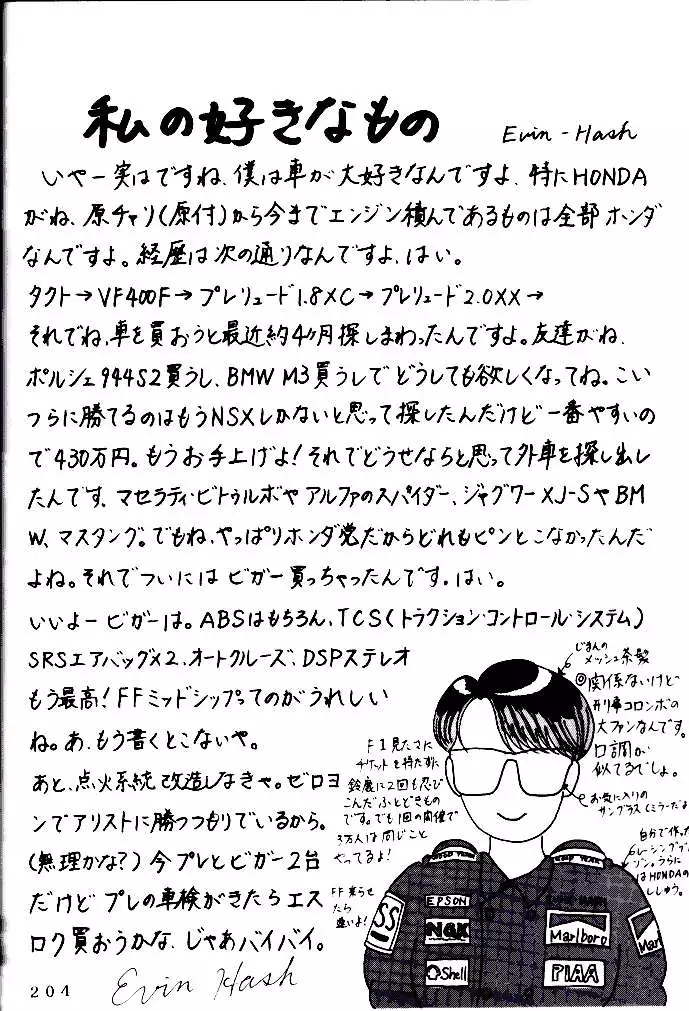 私の好きなもの Evin-Hash
いやー実はですね、僕は車が大好きなんですよ、特にHONDA
がね、原チャリ(原付)から今までエンジン積んであるものは全部ホンダ
なんですよ。経歴は次の通りなんですよ、はい。
タクト→VF400F→プレリュード1.8XC→プレリュード2.0XX→
それでね、車を買おうと最近約4ヶ月探しまわったんですよ。友達がね、
ポルシェ944S2買うし、BMW M3買うしでどうしても欲しくなってね。こい
つらに勝てるのはもうNSXしかないと思って探したんだけど一番やすいの
で430万円。もうお手上げよ!それでどうせならと思って外車を探し出し
たんです、マセラティ・ビトゥルボやアルファのスパイダー、ジャグワーXJ-SやBM
W、マスタング。でもね、やっぱりホンダ党だからどれもピンとこなかったんだ
よね。それでついにはビガー買っちゃったんです。はい。
いいよービガーは。ABSはもちろん、TCS(トラクション・コントロール・システム)
SRSエアバッグ×2、オートクルーズ、DSPステレオ
もう最高!FFミッドシップってのがうれしい
ね。あ、もう書くとこないや。
あと、点火系統改造しなきゃ。ゼロヨ
ンでアリストに勝つつもりでいるから。
(無理かな?)今プレとビガー2台
だけど プレの車検がきたらエス
ロク買おうかな、じゃあバイバイ。
Evin Hash
204
じまんの
メッシュ茶髪
◎関係ないけど
刑事コロンボの
大ファンなんです。
口調が
似てるでしょ。
お気に入りの
サングラス(ミラーだよ
自分で作った
レーシングブル
ゾン。うらに
はHONDAの
ししゅう。
F1見たさに
チケットを持たずに
鈴鹿に2回も忍び
こんだふとどきもの
です。でも1回の開催で
3万人は同じこと
やってるよ!
FF 来らせ
たら
速いよ!
EPSON
NGK
Shell
Marlboro
PIAA
SS
Marl